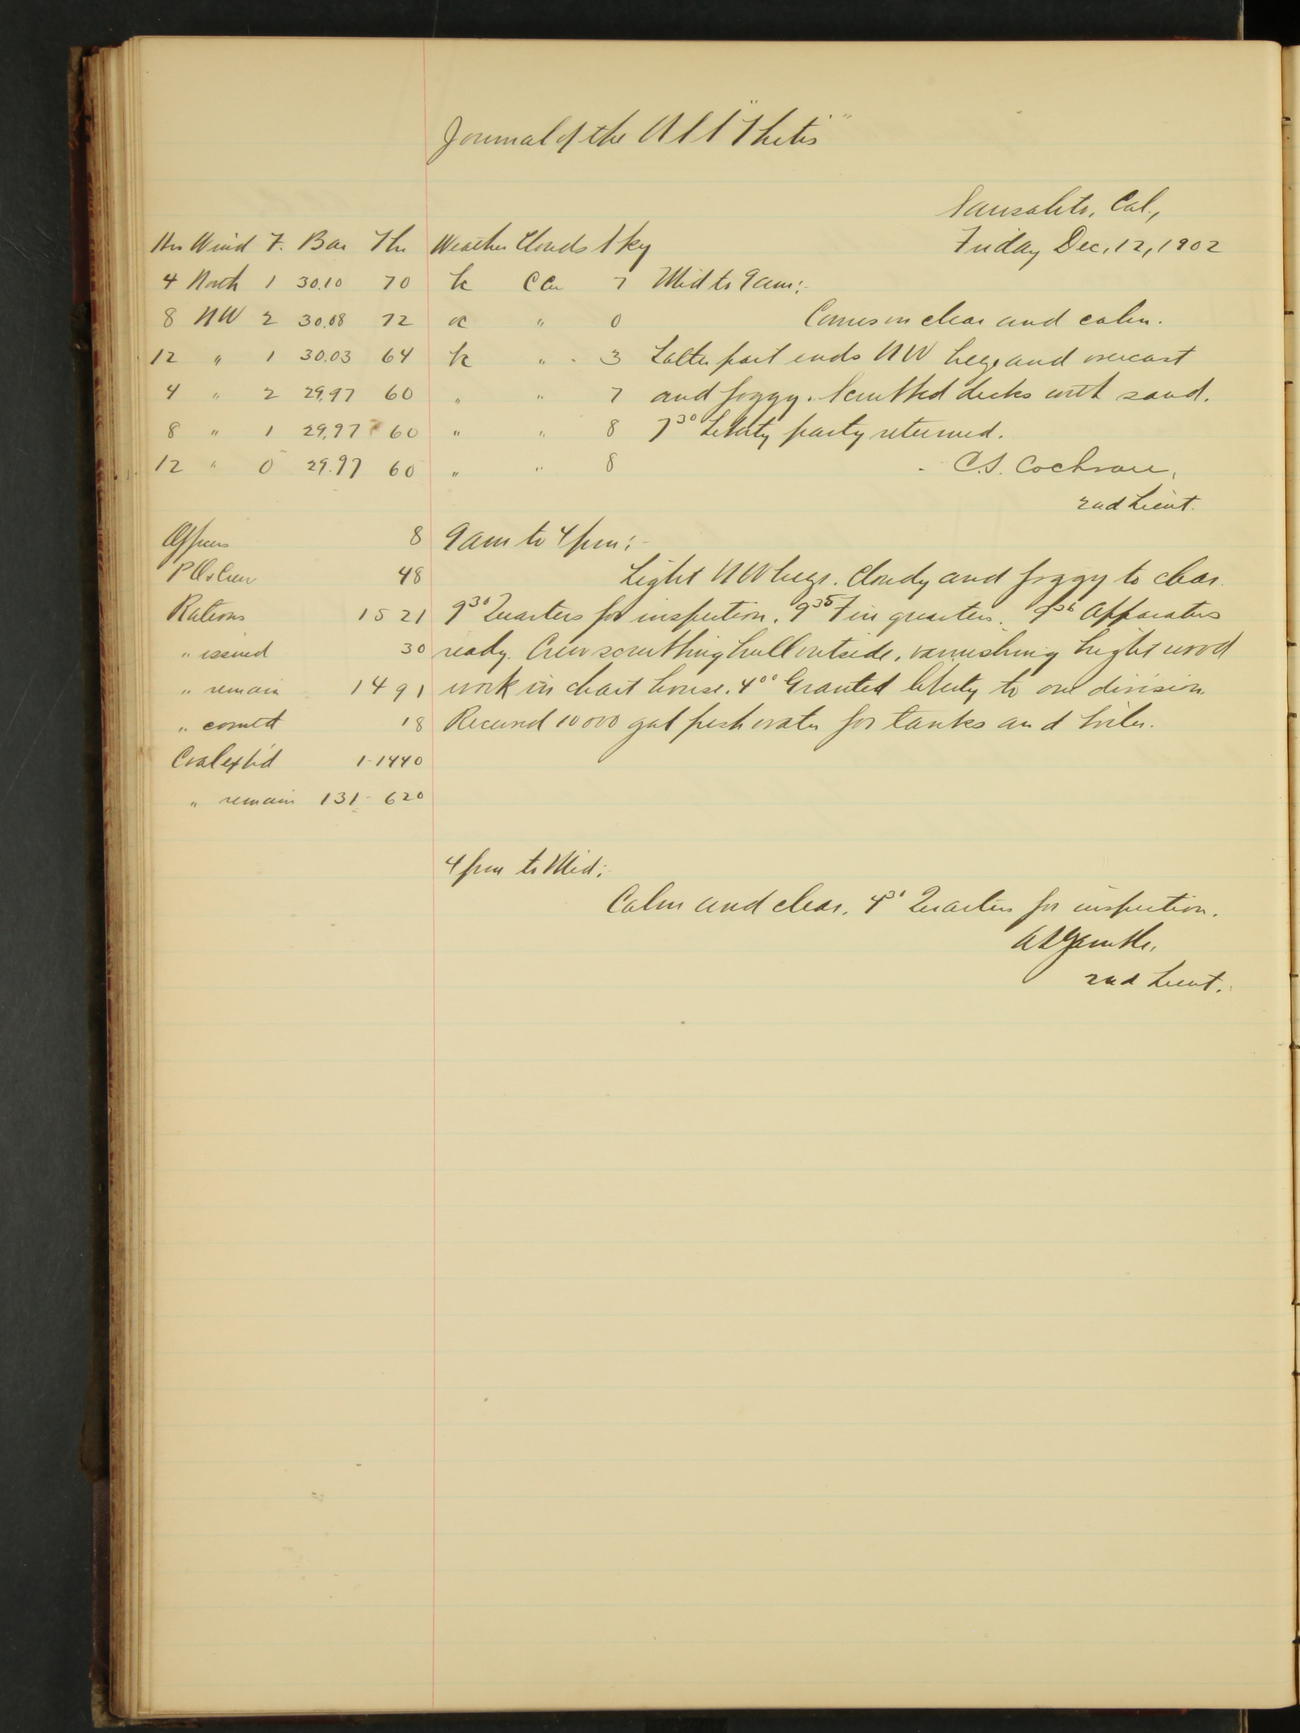 Journal of the USS "Thetis"
Sausalito, Cal.,
Friday Dec. 12, 1902
Hrs Wind F. Bar Thr Weather Clouds Sky
4 North 1 30.10 70 bc C Cu 7 Mid to 9 am:-
8 NW 2 30.08 72 oc " 0 Comes in clear and calm.
12 " 1 30.03 64 bc " 3 Latter part ends NW breeze and overcast
4 " 2 29.97 60 " " 7 and foggy. Scrubbed decks with sand.
8 " 1 29.97 60 " " 8 7³⁰ Liberty party returned.
12 " 0 29.97 60 " " 8 C.S. Cochran,
2nd Lieut.
Officers 8 9 am to 4 pm:-
P.O. & Crew 48 Light NW brzs. Cloudy and foggy to clear.
Rations 1521 9³⁰ Quarters for inspection. 9³⁵ Fire quarters. 9³⁶ Apparatus
" issued 30 ready. Crew scrubbing hull outside, varnishing bright wood
" remain 1491 work in chart house. 4⁰⁰ Granted liberty to one division
" comt'd 18 Received 10000 gal fresh water for tanks and boiler.
Coal exp'd 1-1440
" remain 131-620
4 pm to Mid:
Calm and clear. 4³⁰ Quarters for inspection.
2nd Lieut.